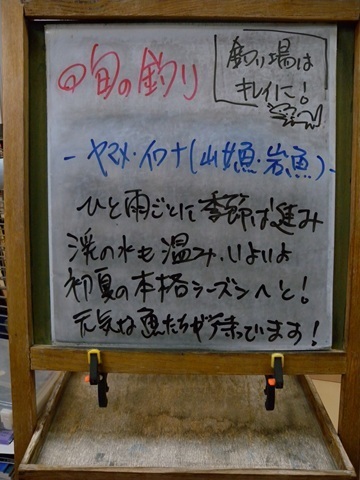 旬の釣り
釣り場は
キレイに!
-ヤマメ・イワナ(山女魚・岩魚)-
ひと雨ごとに季節は進み
渓の水も温み、いよいよ
初夏の本格シーズンへと!
元気な魚たちが待っています!